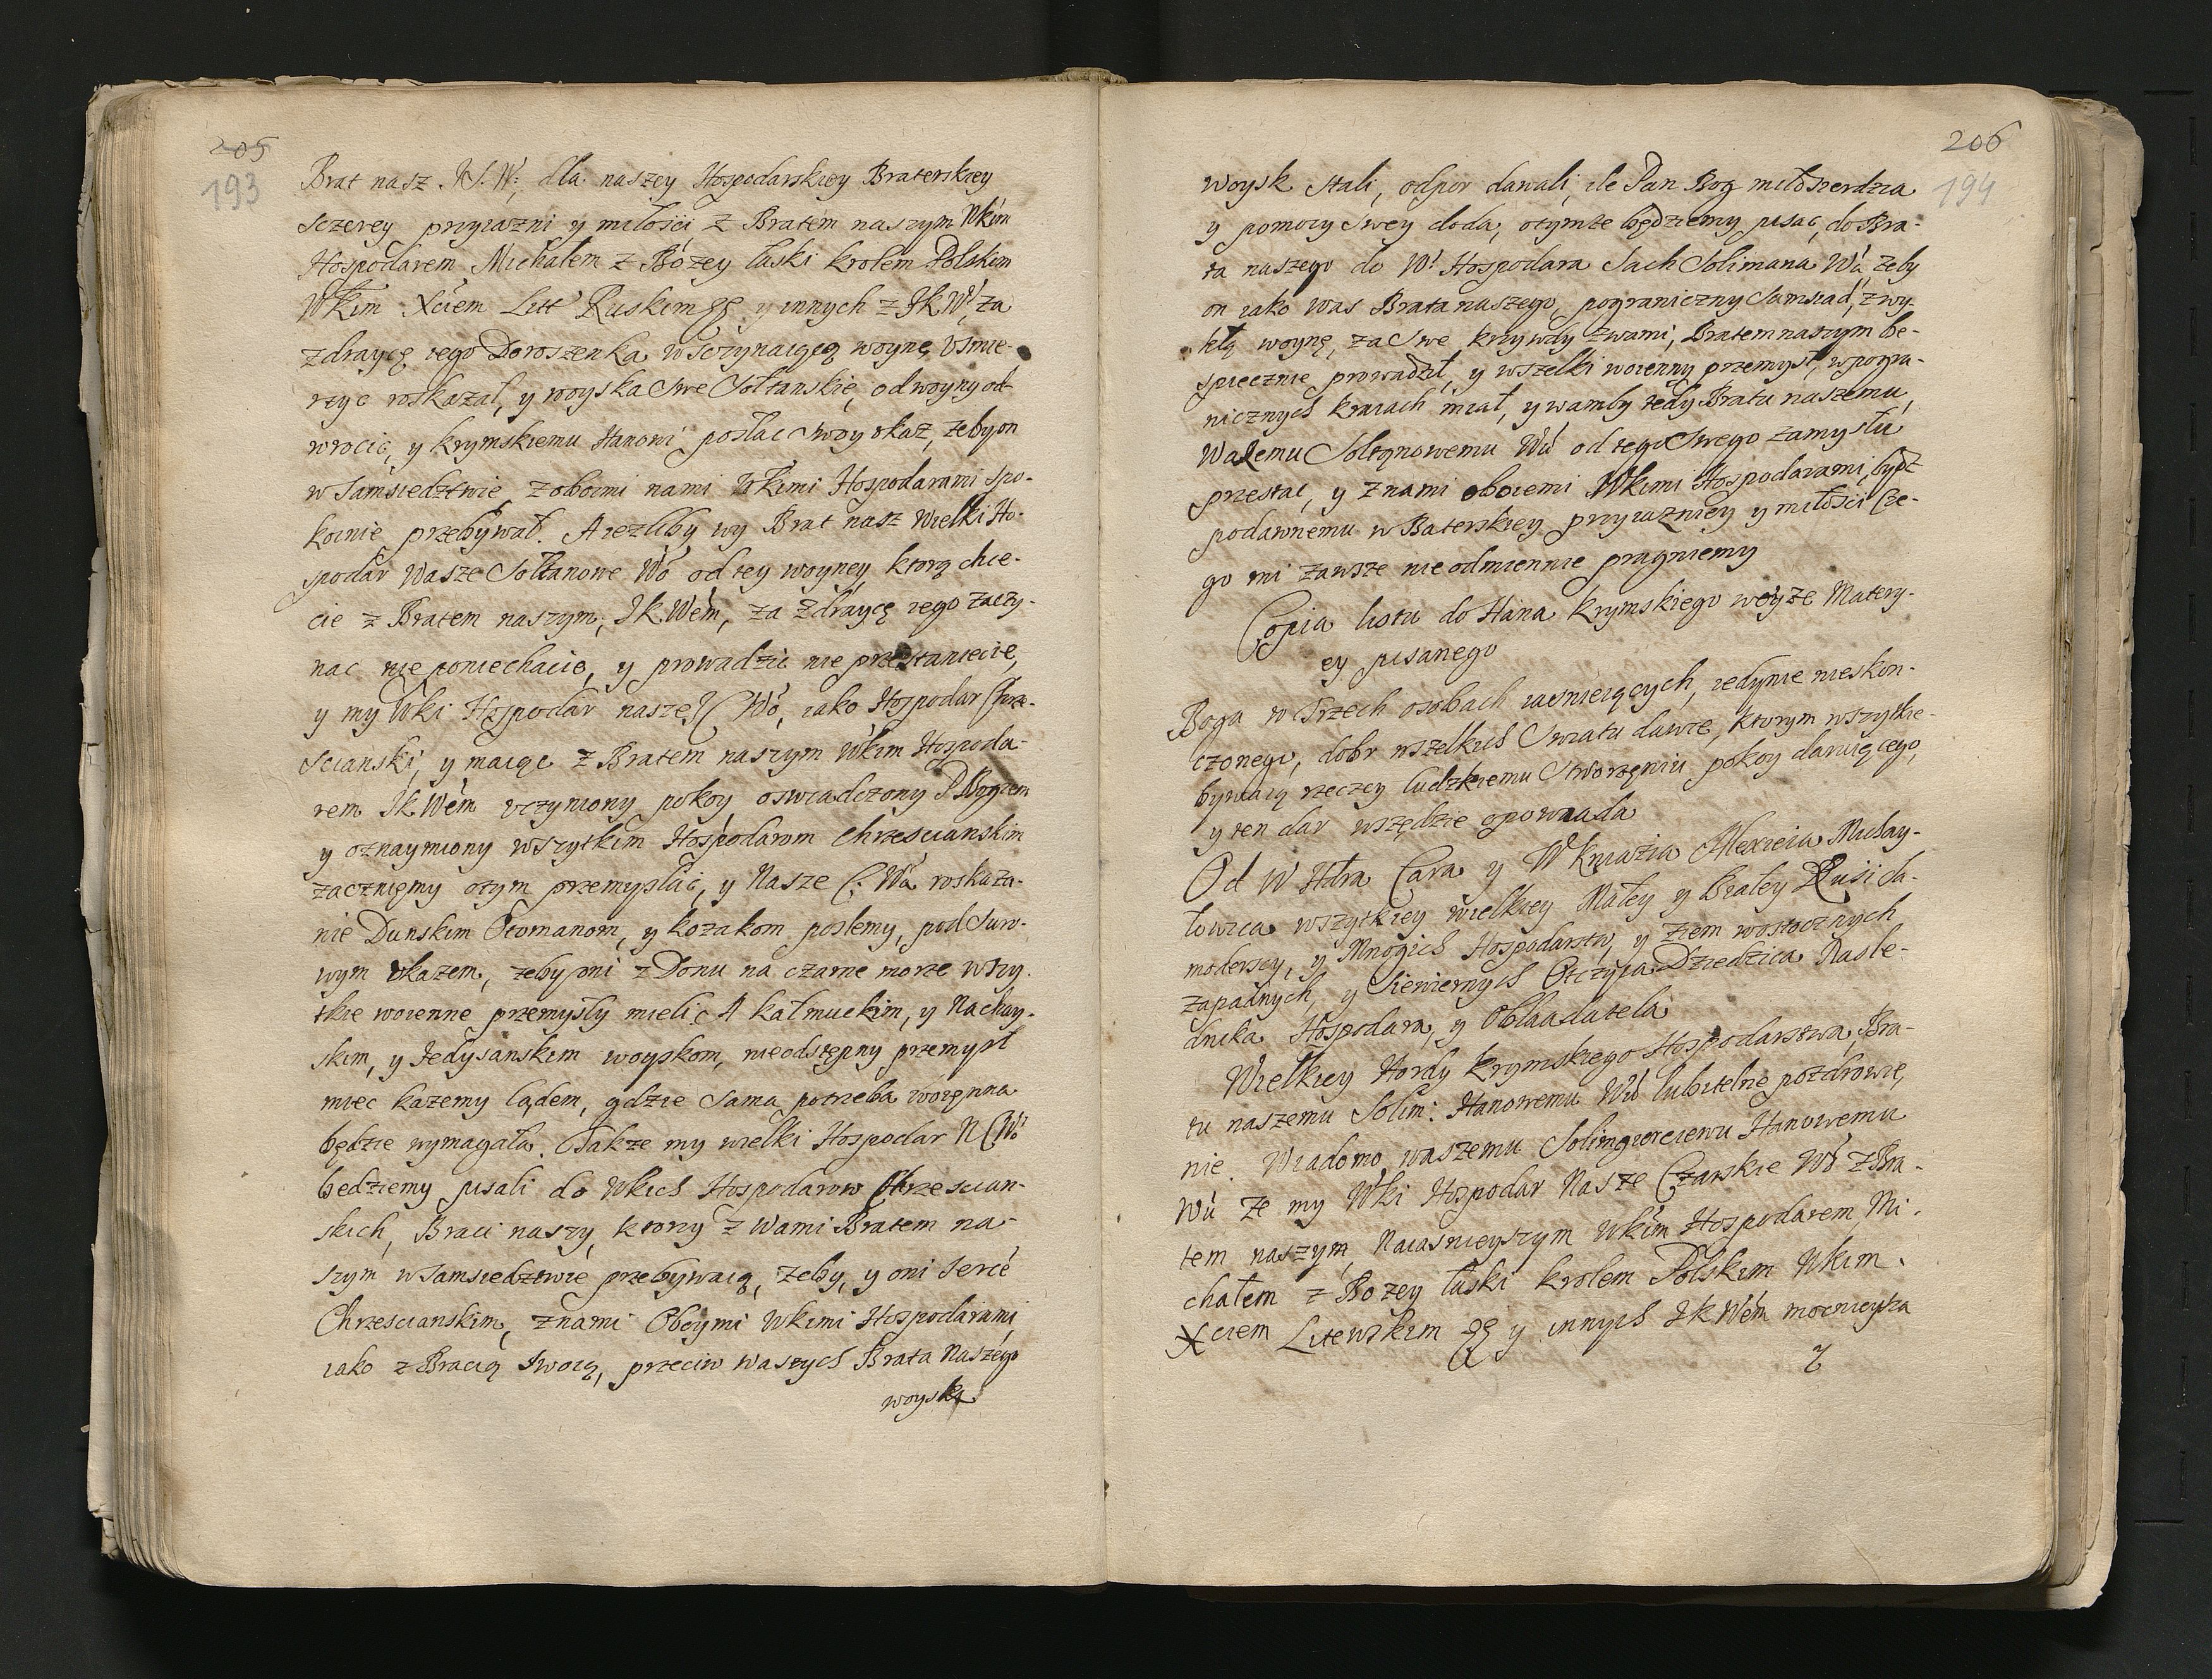 205
193
Brat nasz. W. S. W: dla naszey Hospodarskiey Braterskiey
sczerey przyiazni y miłości z Bratem naszym Wkim
Hospodarem Michałem z Bożey łaski krolem Polskim
Wkim Xciem Litt Ruskim y innych z JKW. za
zdraycę tego Doroszenka wsczynaiącą woynę vsmie-
rzyc roskazał, y woyska swe Sołtanskie, od woyny od
wrocic, y krymskiemu Hanowi posłac swoy vkaz, żeby on
w samsiedztwie z oboimi nami Wkimi Hospodarami spo-
koinie przebywał. A iezliby wy Brat nasz Wielki Ho-
spodar Wasze Sołtanowe Wo od tey woyney ktorą chce-
cie z Bratem naszym, JKWem, za zdraycę iego zaczy-
nac nie poniechacie, y prowadzic nie przestaniecie,
y my Wki Hospodar nasze C Wo, iako Hospodar Chrze-
scianski, y maiąc z Bratem naszym Wkim Hospoda-
rem JKWem vczyniony pokoy oswiadczony P Bogiem
y oznaymiony wszytkim Hospodarom Chrzescianskim
zaczniemy otym przemyslac, y Nasze C. Wa roskaza-
nie Dunskim Otomanom, y kozakom poslemy, pod suro-
wym vkazem, żeby oni z Donu na czarne morze wszy-
tkie woienne przemysły mieli, A kałmuckim, y Nachay-
skim, y Jedysanskim woyskom, nieodstępny przemysł
miec każemy lądem, gdzie sama potrzeba woięnna
będzie wymagała. Także my wielki Hospodar N C Wo
bedziemy pisali do Wkich Hospodarow Chrzescian-
skich, Braci naszy, ktorzy z Wami Bratem na-
szym w samsiedztwie przebywaią, żeby, y oni serce
Chrzescianskim, z nami Oboymi Wkimi Hospodarami,
iako z Bracią swoią, przeciw waszych Brata Naszego
woyska
206
194
woysk stali, odpor dawali, ile Pan Bog miłosierdzia
y pomocy swey doda, otymże będziemy pisac, do Bra-
ta naszego do W. Hospodara Sach Solimana Wa żeby
on iako was Brata naszego, pograniczny samsiad, zwy-
kłą woynę, za swe krzywdy z wami, Bratem naszym be-
spiecznie prowadził, y wszelki woienny przemysł, w pogra-
nicznych kraiach miał, y wamby tedy Bratu naszemu,
Waszemu Sołtanowemu Wu od tego swego zamysłu
przestac, y z nami oboiemi Wkimi Hospodarami, bydz
podawnemu w Baterskiey przyiazniey y miłości Cze-
go mi zawsze nieodmiennie pragniemy
Copia listu do Hana krymskiego weyże Matery-
ey pisanego
Boga w Trzech osobach iasnieiących, iedynie nieskon-
czonego, dobr wszelkich Swiatu dawcę, ktorym wszytkie
bywaią rzeczy ludzkiemu stworzeniu pokoy daruiącego,
y ten dar wszędzie opowiada
Od W Hdra Cara y W kniazia Alexieia Michay-
łowica wszytkiey wielkiey Małey y Białey Rusi Sa-
moderscy, y Mnogich Hospodarstw, y Ziem wostocznych
zapadnych, y Siewiernych Otczyca Dziedzica Nasle-
dnika Hospodara, y Obladatela
Wielkiey Hordy krymskiego Hospodarstwa, Bra-
tu naszemu Solim: Hanowemu Wu lubitelne pozdrowie,
nie. Wiadomo waszemu Solimgiereiewu Hanowemu
Wu że my Wki Hospodar Nasze Czarskie Wo z Bra-
tem naszym, Naiasnieyszym Wkim Hospodarem, Mi-
chałem z Bożey łaski krolem Polskim Wkim
Xciem Litewskim y innych JKWem mocnieysza